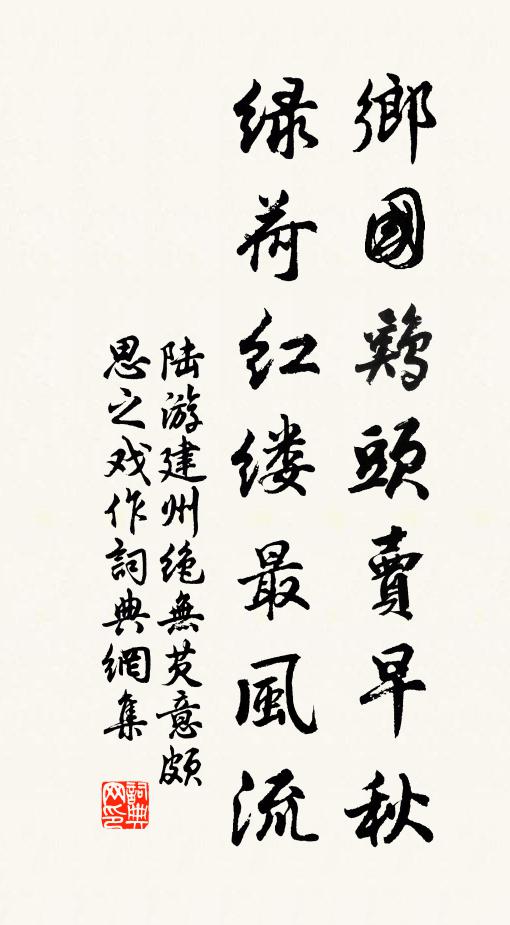 鄉國鷄頭賣早秋
绿荷红缕最風流
陆游建州绝無芡意頗
思之戏作詞典網集
詞典网印